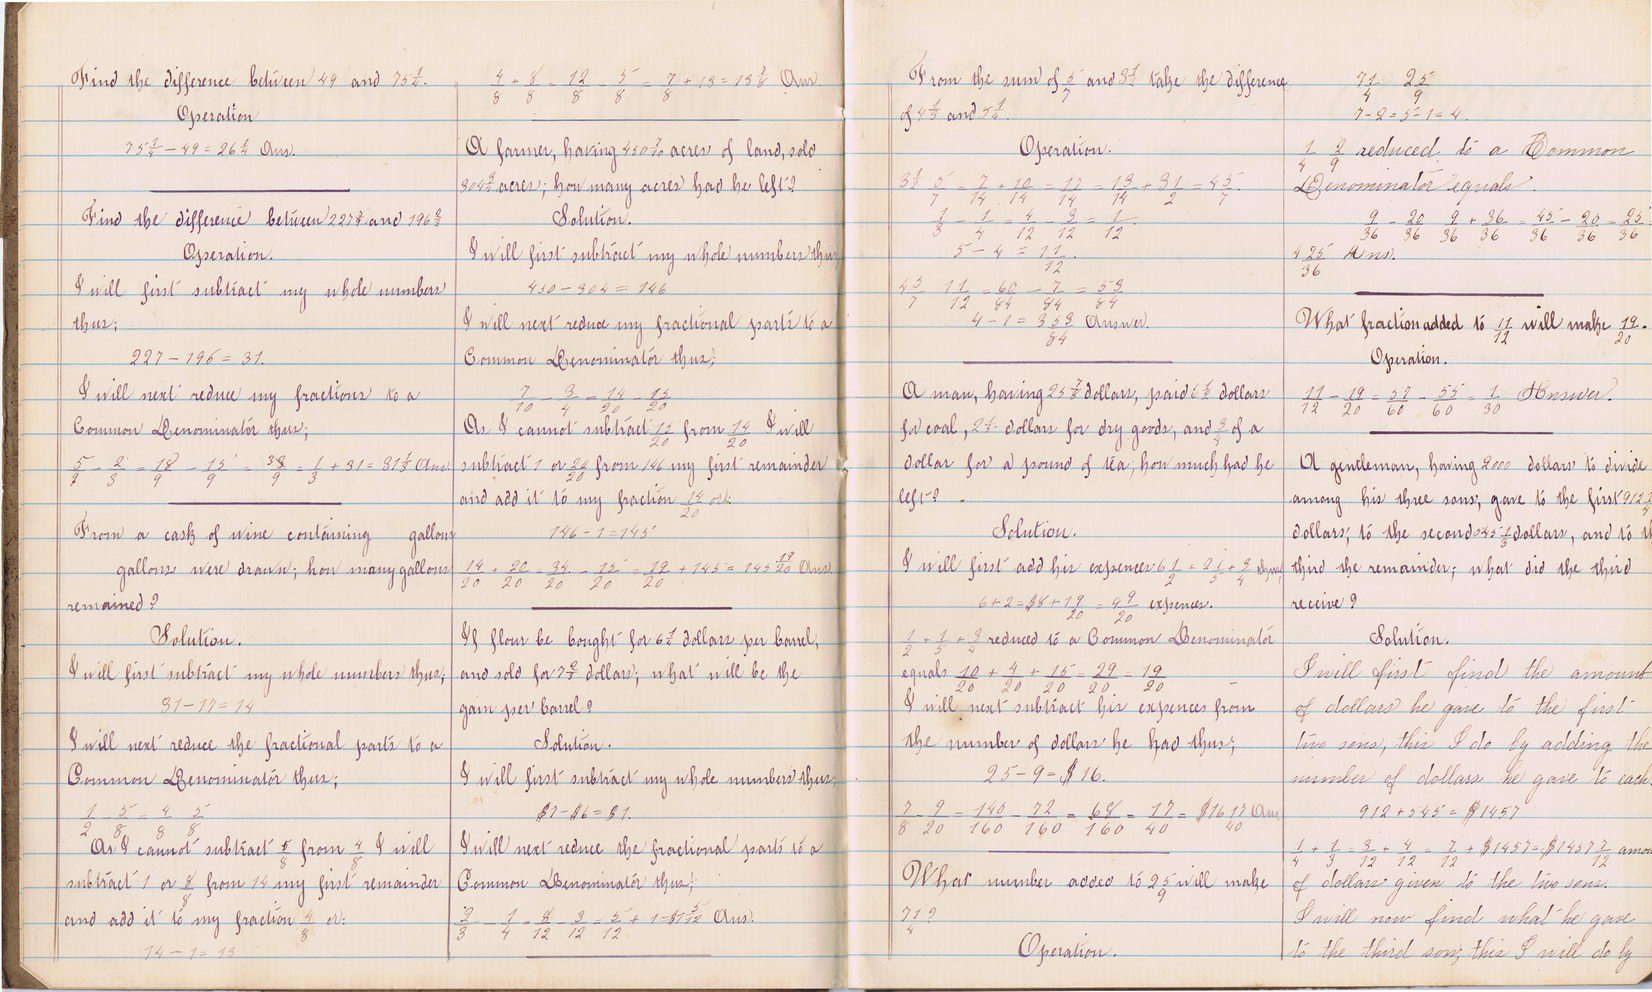 Find the difference between 49 and 75 1/4.
Operation
75 1/4 - 49 = 26 1/4 Ans.
Find the difference between 227 and 196
Operation.
I will first subtract my whole numbers
thus;
227 - 196 = 31.
I will next reduce my fractions to a
Common Denominator thus;
+ 31 = 31 1/3 Ans
From a cask of wine containing gallons
gallons were drawn; how many gallons
remained?
Solution.
I will first subtract my whole numbers thus;
31 - 17 = 14
I will next reduce the fractional parts to a
Common Denominator thus;
1/2 - 5/8 = 4/8 5/8
As I cannot subtract 5/8 from 4/8 I will
subtract 1 or 8/8 from 14 my first remainder
and add it to my fraction 4/8 or:
14 - 1 = 13
4/8 + 8/8 = 12/8 - 5/8 = 7/8 + 13 = 13 7/8 Ans
A farmer, having 450 7/10 acres of land, sold
304 3/4 acres; how many acres had he left?
Solution.
I will first subtract my whole numbers thus
450 - 304 = 146
I will next reduce my fractional parts to a
Common Denominator thus;
7/10 - 3/4 = 14/20 - 15/20
As I cannot subtract 15/20 from 14/20 I will
subtract 1 or 20/20 from 146 my first remainder
and add it to my fraction 14/20 or:
146 - 1 = 145
14/20 + 20/20 = 34/20 - 15/20 = 19/20 + 145 = 145 19/20 Ans
If flour be bought for 6 1/4 dollars per barrel,
and sold for 7 2/3 dollars; what will be the
gain per barrel?
Solution.
I will first subtract my whole numbers thus;
$7 - $6 = $1.
I will next reduce the fractional parts to a
Common Denominator thus;
2/3 - 1/4 = 8/12 - 3/12 = 5/12 + 1 = $1 5/12 Ans.
From the sum of 5/7 and 3 1/2 take the difference
of 4 1/3 and 5 1/4.
Operation.
3 1/2 5/7 = 7/14 + 10/14 = 17/14
1/3 - 1/4 = 4/12 - 3/12 = 1/12.
5 - 4 = 11/12.
4 - 1 = 3 53/84 Answer.
A man, having 25 7/8 dollars, paid 6 1/2 dollars
for coal, 2 1/5 dollars for dry goods, and 3/4 of a
dollar for a pound of tea; how much had he
left?
Solution.
I will first add his expences 6 1/2 + 2 1/5 + 3/4 thus,
6 + 2 = $8 + 1 9/20 = 9 9/20 expences.
1/2 + 1/5 + 3/4 reduced to a Common Denominator
equals 10/20 + 4/20 + 15/20 = 29/20 = 1 9/20
I will next subtract his expences from
the number of dollars he had thus;
25 - 9 = $16.
7/8 - 9/20 = 140/160 - 72/160 = 68/160 = 17/40 = $16 17/40 Ans.
What number added to 2 5/9 will make
7 1/4?
Operation.
7 1/4 2 5/9
7 - 2 = 5 - 1 = 4.
reduced to a Common
Denominator equals.
9/36 - 20/36 9/36 + 36/36 = 45/36 - 20/36 = 25/36
4 25/36 Ans.
What fraction added to 11/12 will make 19/20.
Operation.
11/12 - 19/20 = 57/60 - 55/60 = 1/30 Answer.
A gentleman, having 2000 dollars to divide
among his three sons; gave to the first 912
dollars; to the second 545 1/3 dollars, and to
third the remainder; what did the third
receive?
Solution.
I will first find the amount
of dollars he gave to the first
two sons, this I do by adding the
number of dollars he gave to each.
912 + 545 = $1457
1/4 + 1/3 = 3/12 + 4/12 = 7/12 + $1457 = $1457 7/12 amou
of dollars given to the two sons.
I will now find what he gave
to the third son; this I will do by